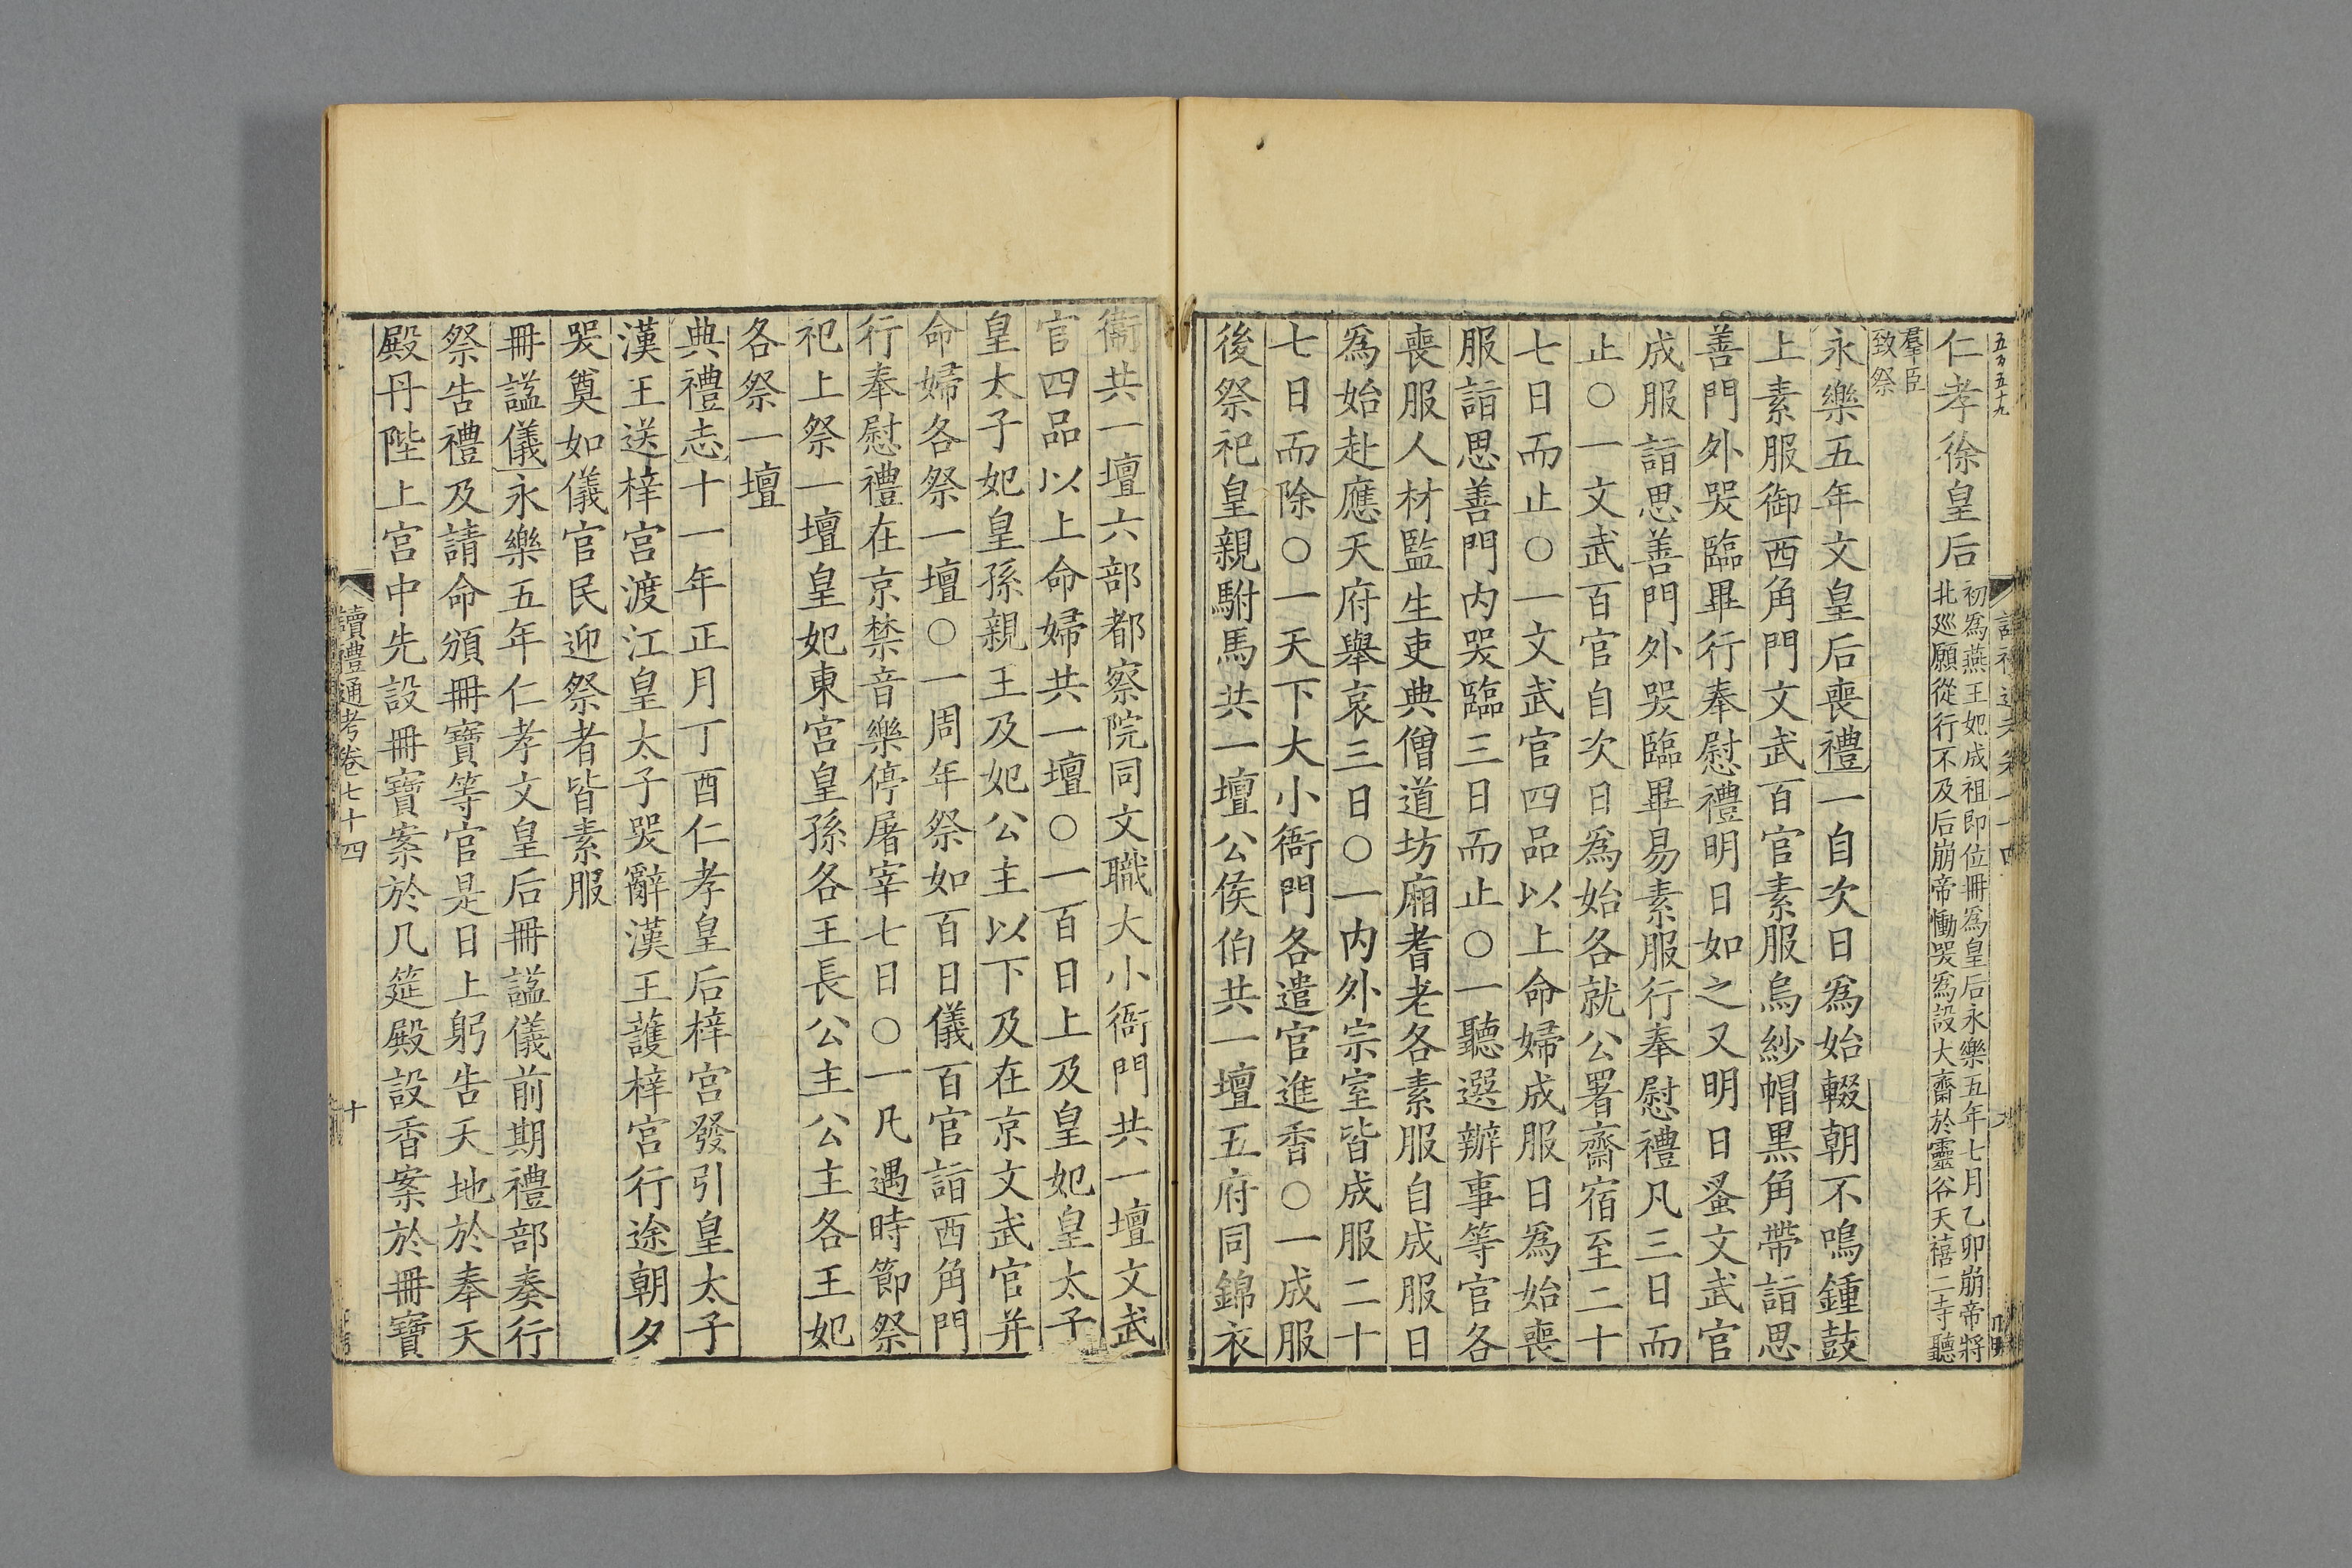 五百五十九
仁孝徐皇后初爲燕王妃成祖即位冊爲皇后永樂五年七月乙卯崩帝將
北廵願從行不及后崩帝慟哭爲設大齋於靈谷天禧二寺聽
羣臣
致祭
永樂五年文皇后喪禮一自次日爲始輟朝不鳴鍾鼓
上素服御西角門文武百官素服烏紗帽黑角帶詣思
善門外哭臨畢行奉慰禮明日如之又明日蚤文武官
成服詣思善門外哭臨畢易素服行奉慰禮凡三日而
止○一文武百官自次日爲始各就公署齋宿至二十
七日而止○一文武官四品以上命婦成服日爲始喪
服詣思善門内哭臨三日而止○一聽選辦事等官各
喪服人材監生吏典僧道坊廂耆老各素服自成服日
爲始赴應天府舉哀三日○一内外宗室皆成服二十
七日而除○一天下大小衙門各遣官進香○一成服
後祭祀皇親駙馬共一壇公侯伯共一壇五府同錦衣
衞共一壇六部都察院同文職大小衙門共一壇文武
官四品以上命婦共一壇○一百日上及皇妃皇太子
皇太子妃皇孫親王及妃公主以下及在京文武官并
命婦各祭一壇○一周年祭如百日儀百官詣西角門
行奉慰禮在京禁音樂停屠宰七日○一凡遇時節祭
祀上祭一壇皇妃東宮皇孫各王長公主公主各王妃
各祭一壇
典禮志十一年正月丁酉仁孝皇后梓宮發引皇太子
漢王送梓宮渡江皇太子哭辭漢王護梓宮行途朝夕
哭奠如儀官民迎祭者皆素服
冊諡儀永樂五年仁孝文皇后冊諡儀前期禮部奏行
祭告禮及請命頒冊寶等官是日上躬告天地於奉天
殿丹陛上宮中先設冊寶案於几筵殿設香案於冊寶
讀禮通考卷七十四
十